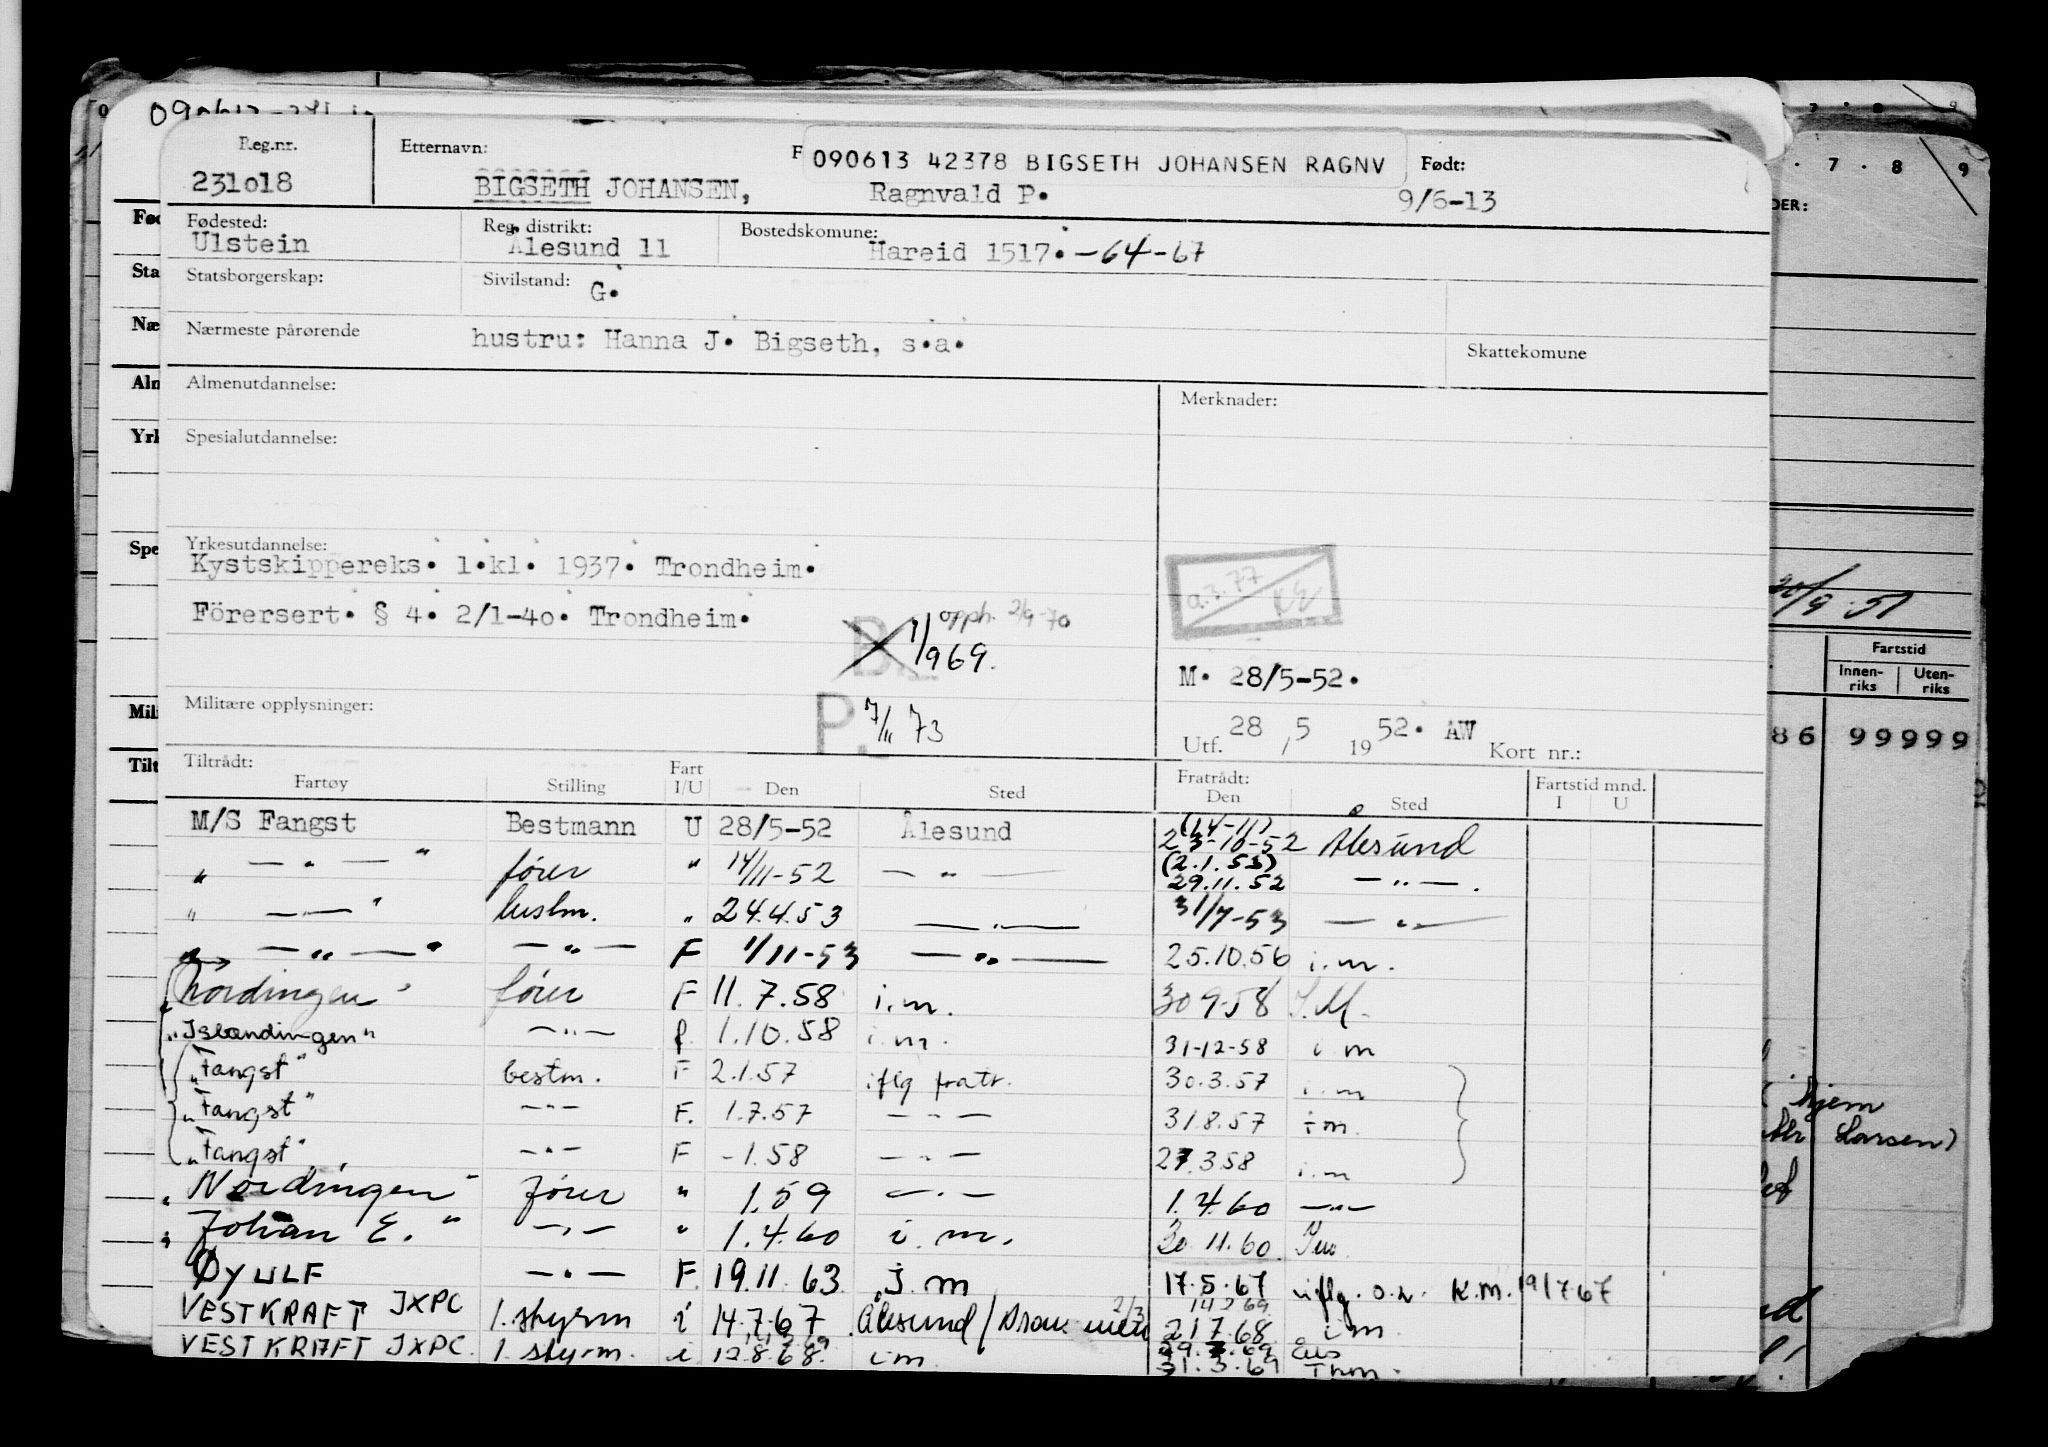 Reg.nr. Etternavn: 090613 42378 BIGSETH JOHANSEN RAGNV Født:
231o18 BIGSETH JOHANSEN, Ragnvald P. 9/6-13
Fødested: Reg. distrikt: Bostedskomune:
Ulstein Ålesund 11 Hareid 1517. -64-67
Statsborgerskap: Sivilstand: G.
Nærmeste pårørende hustru: Hanna J. Bigseth, s.a. Skattekomune
Almenutdannelse: Merknader:
Spesialutdannelse:
Yrkesutdannelse:
Kystskippereks. 1.kl. 1937. Trondheim.
a.3.77
Förersert. § 4. 2/1-4o. Trondheim.
opph. 2/9-70
B. 1/969.
M. 28/5-52.
Militære opplysninger: P. 7/11 73
Utf. 28 / 5 19 52. AW Kort nr.:
Tiltrådt: Fratrådt: Fartstid mnd.
Fartøy Stilling Fart I/U Den Sted Den Sted I U
M/S Fangst Bestmann U 28/5-52 Ålesund (14-11) 23-10-52 Ålesund
" — " — " fører " 14/11-52 — " — (2.1.53) 29.11.52 — " — .
" — — " " 24.4.53 — " — 31/7-53 — " —
" — " — " — " — F 1/11-53 — " — 25.10.56 i.m.
Nordingen" fører F 11.7.58 i.m. 30 9-58 I.M.
"Islændingen" — " — f. 1.10.58 i.m. 31-12-58 i m
"Fangst" bestm. F 2.1.57 iflg fratr. 30.3.57 i.m
"Fangst" — " — F. 1.7.57 — " — 31.8.57 i m.
"Fangst" — " — F - 1.58 — " — 27.3.58 i.m
"Nordingen" fører " 1.59 — " — 1.4.60 — " —
"Johan E." — " — " 1.4.60 i.m. 30.11.60
ØYULF — " — F. 19.11.63 i.m 17.5.67 iflg. o.r. K.M. 19/7 67
VESTKRAFT JXPC 1. styrm i 14.7.67 Ålesund / 21 7.68 i m
VESTKRAFT JXPC. 1. styrm. i 12.8.68. i m 31.3.69
DER:
20/9-51
Fartstid
Innen-riks Uten-riks
86 99999
hjem
Larsen)